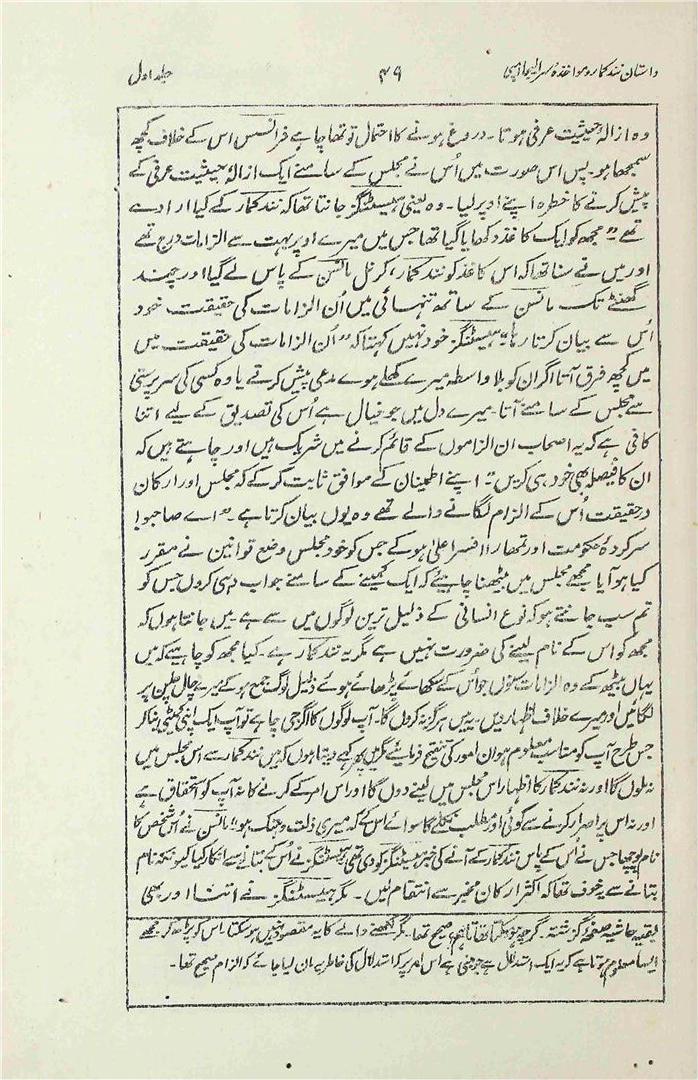 داستان نند کمار و مواخذۂ سر الیجا امپی ۴۹ جلد اول
وہ ازالۂ حیثیت عرفی ہوتا۔ دروغ ہونے کا احتمال تو تھا چاہے فرانسس اس کے خلاف کچھ
سمجھا ہو۔ پس اس صورت میں اُس نے مجلس کے سامنے ایک ازالۂ حیثیت عرفی کے
پیش کرنے کا خطرہ اپنے اوپر لیا۔ وہ یعنی ہیسٹنگز جانتا تھا کہ نند کمار کے کیا ارادے
تھے "مجھ کو ایک کاغذ دکھایا گیا تھا جس میں میرے اوپر بہت سے الزامات درج تھے
اور میں نے سنا تھا کہ اس کاغذ کو نند کمار، کرنل مانسن کے پاس لے گیا اور چند
گھنٹے تک مانسن کے ساتھ تنہائی میں اُن الزامات کی حقیقت خود
اُس سے بیان کرتا رہا" ہیسٹنگز خود نہیں کہتا کہ "اُن الزامات کی حقیقت میں
میں کچھ فرق آتا اگر ان کو بلا واسطہ میرے کھلے ہوے مدعی پیش کرتے یا وہ کسی کی سرپرستی
سے مجلس کے سامنے آتا۔ میرے دل میں جو خیال ہے اُس کی تصدیق کے لیے اتنا
کافی ہے کہ یہ اصحاب ان الزاموں کے قائم کرنے میں شریک ہیں اور چاہتے ہیں کہ
ان کا فیصلہ بھی خود ہی کریں"۔ اپنے اطمینان کے موافق ثابت کر کے کہ مجلس اور ارکان
درحقیقت اُس کے الزام لگانے والے تھے وہ یوں بیان کرتا ہے۔ "اے صاحبو!
سرکردۂ حکومت اور تمھارا افسر اعلیٰ ہو کے جس کو خود مجلس وضع قوانین نے مقرر
کیا ہو آیا مجھے مجلس میں بیٹھنا چاہیئے کہ ایک کمینے کے سامنے جواب دہی کروں جس کو
تم سب جانتے ہو کہ نوع انسانی کے ذلیل ترین لوگوں میں سے ہے۔ میں جانتا ہوں کہ
مجھ کو اس کے نام لینے کی ضرورت نہیں ہے مگر یہ نند کمار ہے۔ کیا مجھ کو چاہیے کہ میں
یہاں بیٹھ کے وہ الزامات سنوں جو اُس کے سکھائے پڑھائے ہوئے ذلیل لوگ جمع ہو کے میرے چال چلن پر
لگائیں اور میرے خلاف اظہار دیں۔ یہ میں ہرگز نہ کروں گا۔ آپ لوگوں کا اگر جی چاہے تو آپ ایک اپنی کمیٹی بنا کر
جس طرح آپ کو مناسب معلوم ہو ان امور کی تنقیح فرمائیے مگر میں پھر کہے دیتا ہوں کہ میں نند کمار سے اس مجلس میں
نہ ملوں گا اور نہ نند کمار کا اظہار اس مجلس میں لینے دوں گا اور اس امر کے کرنے کا نہ آپ کو استحقاق ہے
اور نہ اس پر اصرار کرنے سے کوئی اور مطلب نکلے گا سوائے اس کے کہ میری ذلت و ہتک ہو" مانسن نے اُس شخص کا
نام پوچھا جس نے اُس کے پاس نند کمار کے آنے کی خبر ہیسٹنگز کو دی تھی، ہیسٹنگز نے اُس کے بتانے سے انکار کیا کیونکہ نام
بتانے سے یہ خوف تھا کہ اکثر ارکان مخبر سے انتقام لیں۔ مگر ہیسٹنگز نے اتنا اور بھی
بقیہ حاشیہ صفحۂ گزشتہ۔ گرچہ ہو سکتا تھا تاہم صحیح تھا۔ مگر لکھنے والے کا یہ مقصود نہیں ہو سکتا، اس کو پڑھ کر مجھے
ایسا معلوم ہوتا ہے کہ یہ ایک استدلال ہے جو مبنی ہے اس امر پر کہ استدلال کی خاطر یہ مان لیا جائے کہ الزام صحیح تھا۔